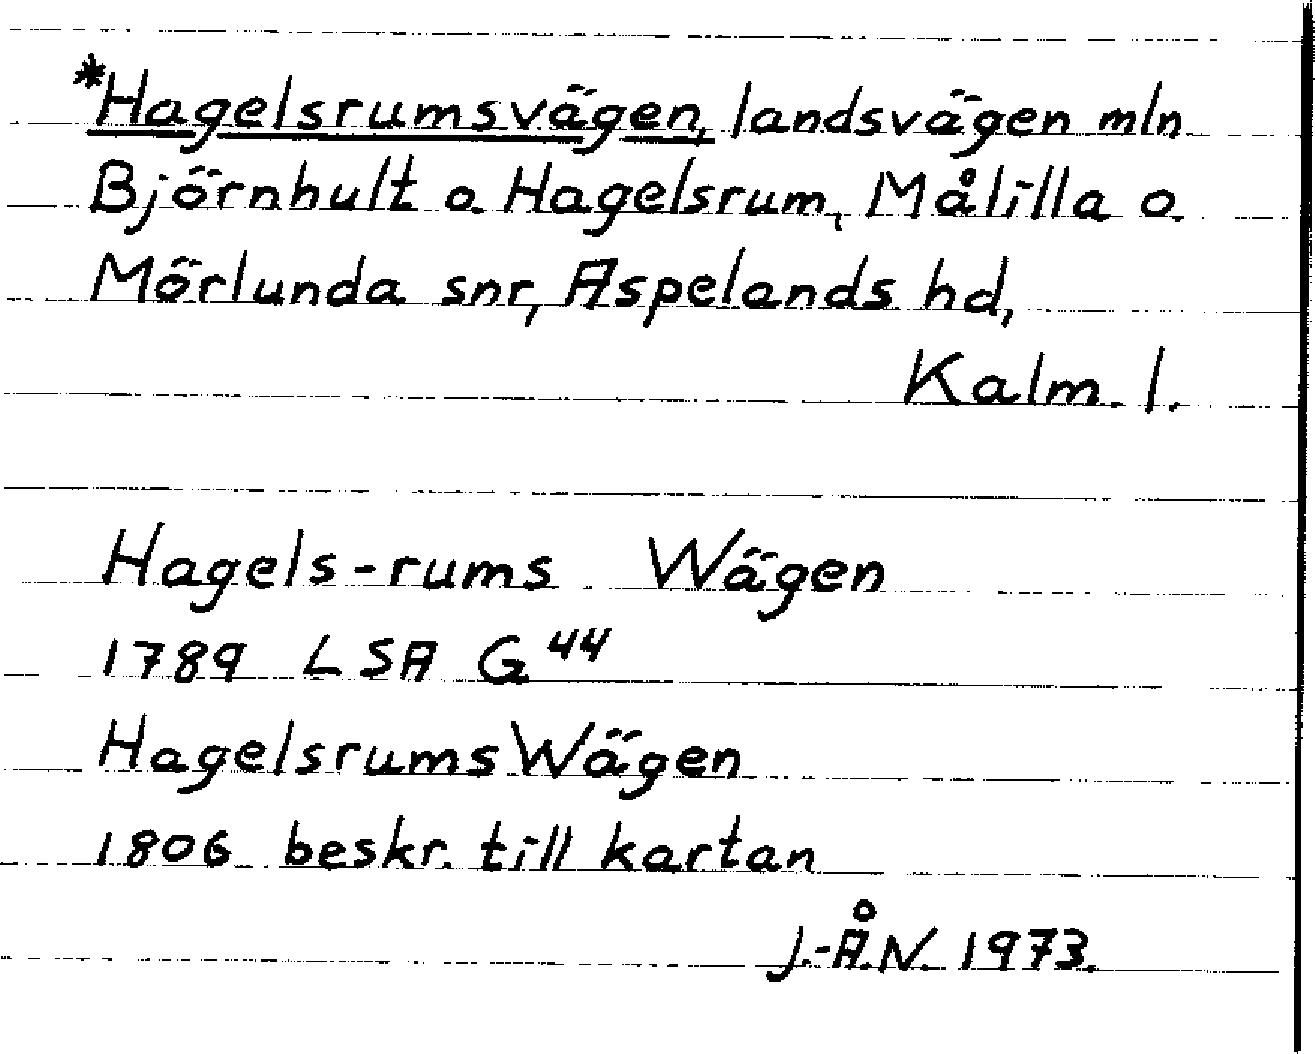 *Hagelsrumsvägen, landsvägen mln
Björnhult o. Hagelsrum, Målilla o.
Mörlunda snr, Aspelands hd,
Kalm. l.
Hagels-rums Wägen
1789 LSA G 44
HagelsrumsWägen
1806 beskr. till kartan
J.-Å.N. 1973.